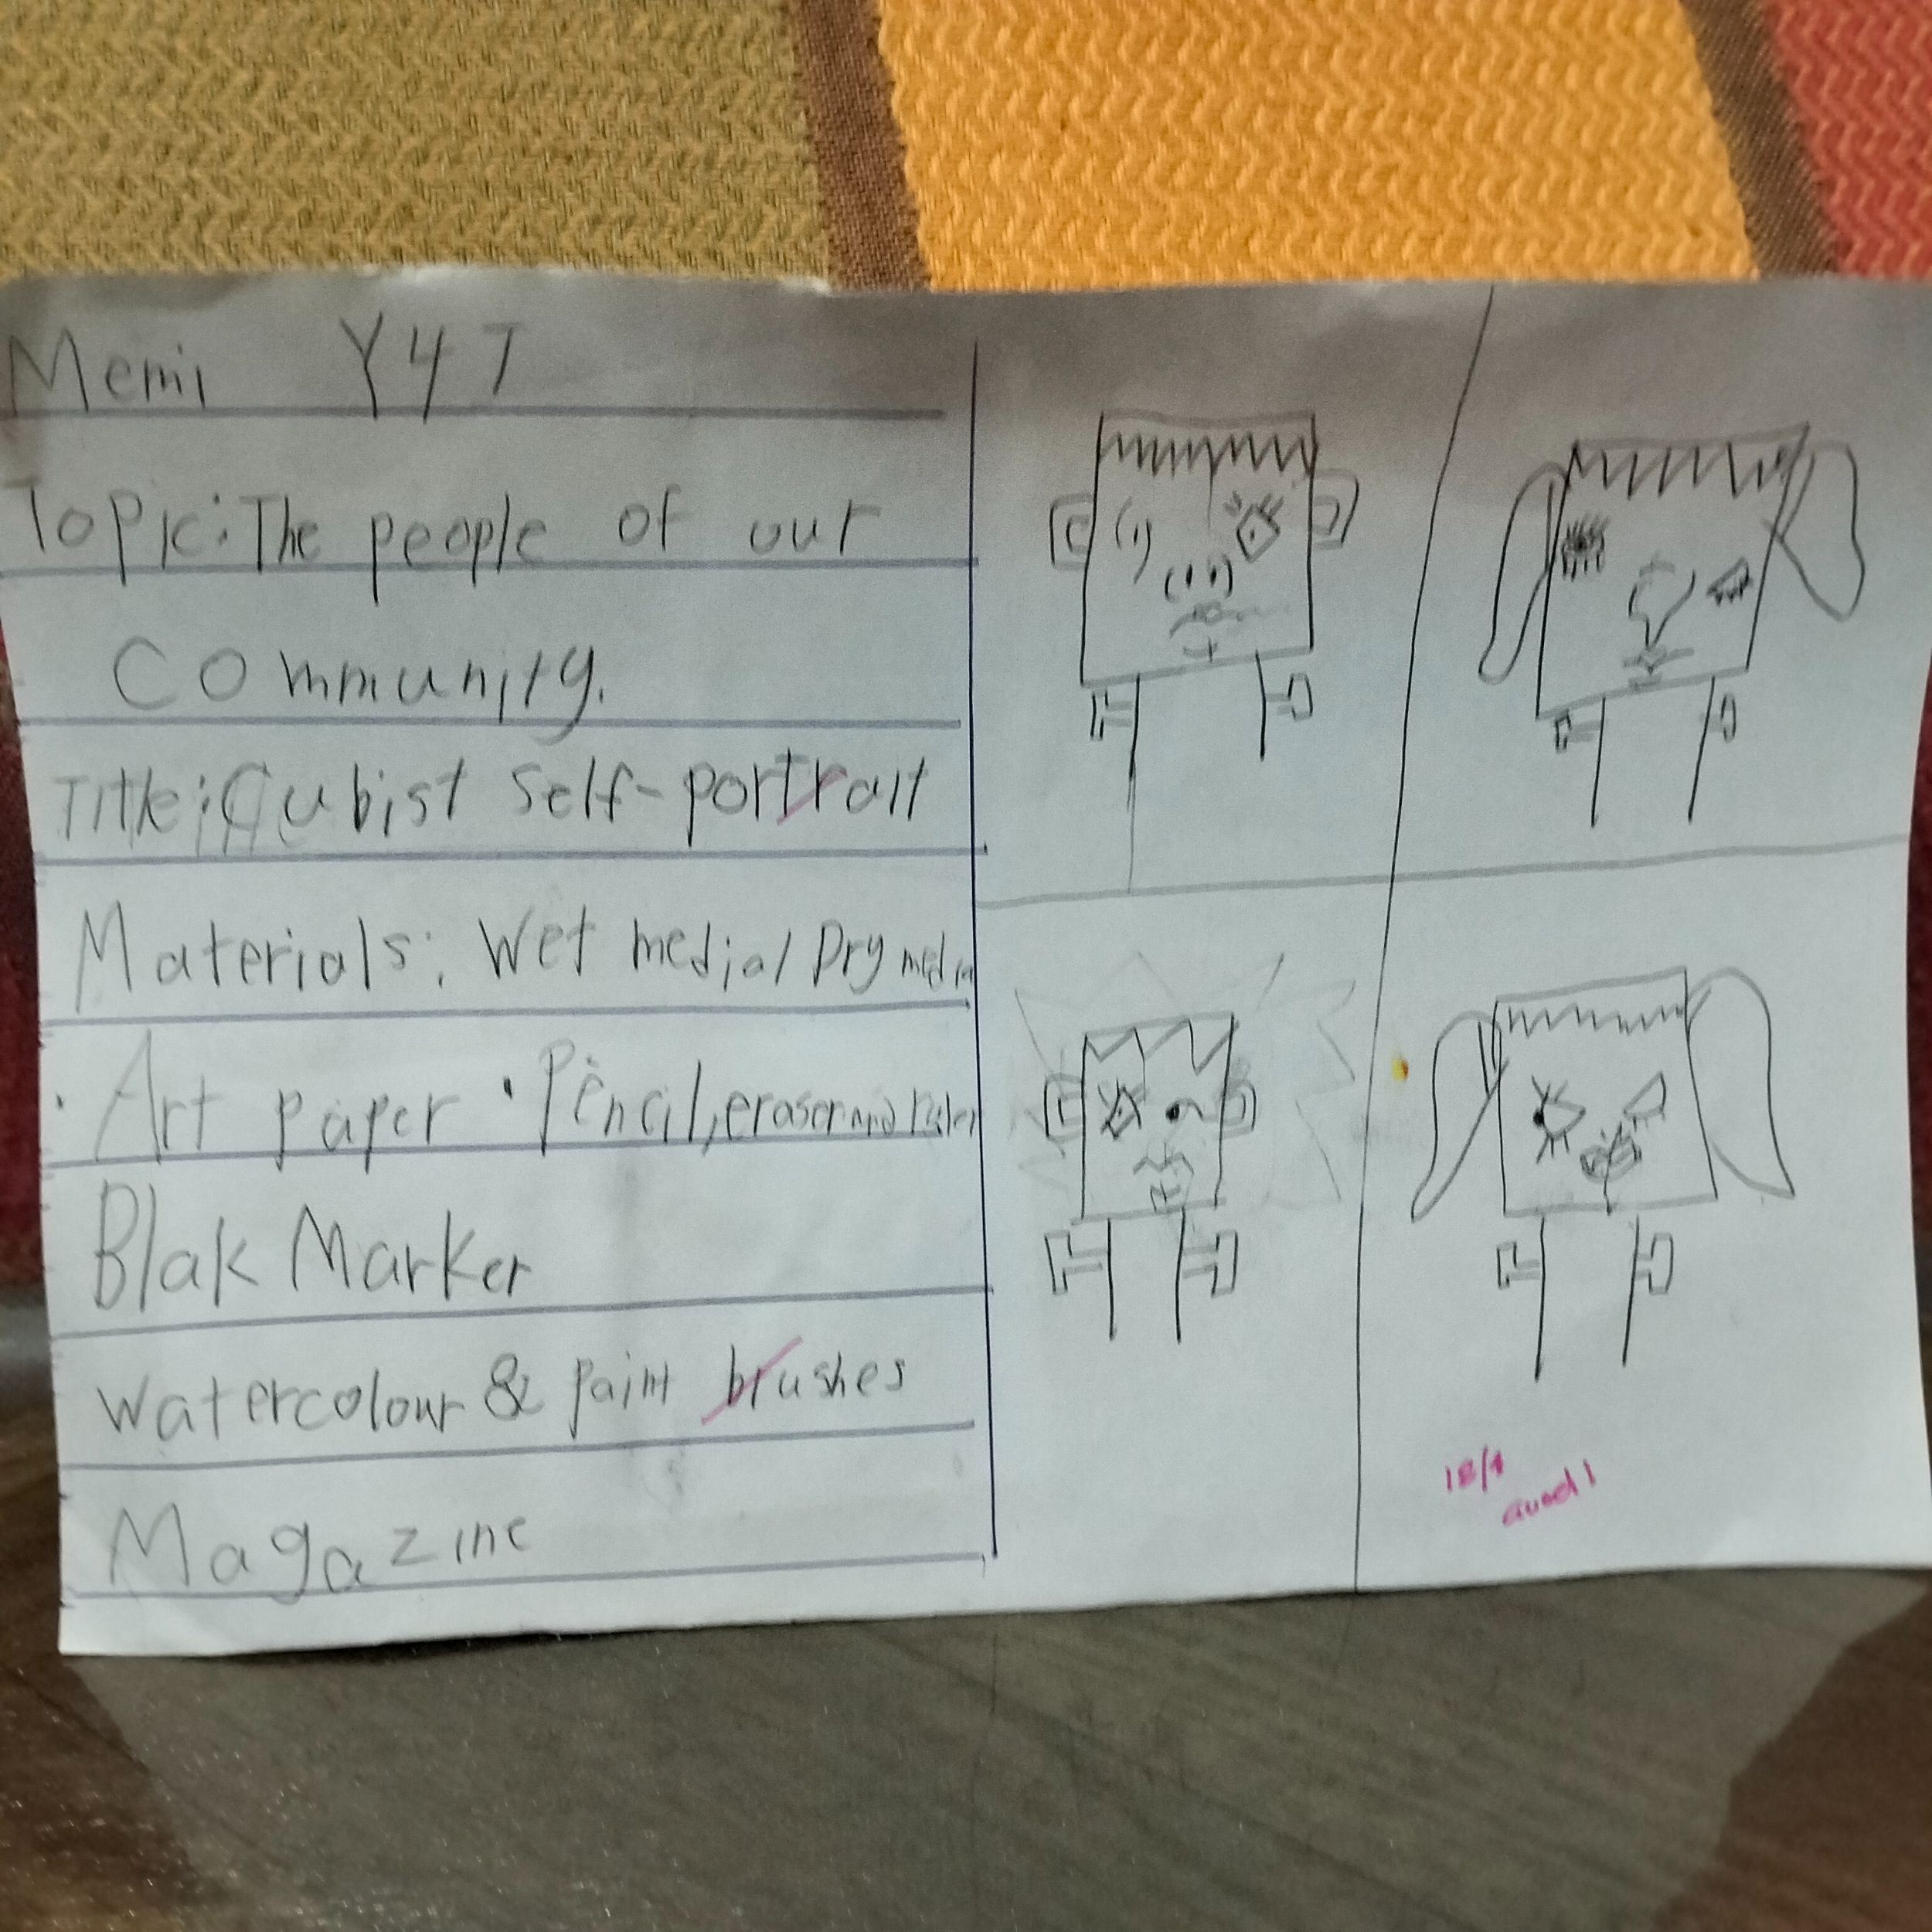 Memi Y4T
Topic: The people of our
Community.
Title: Cubist Self-portrait
Materials: Wet medial Dry media
• Art paper • Pencil, eraser and ruler
Blak Marker
Watercolour & paint brushes
Magazine